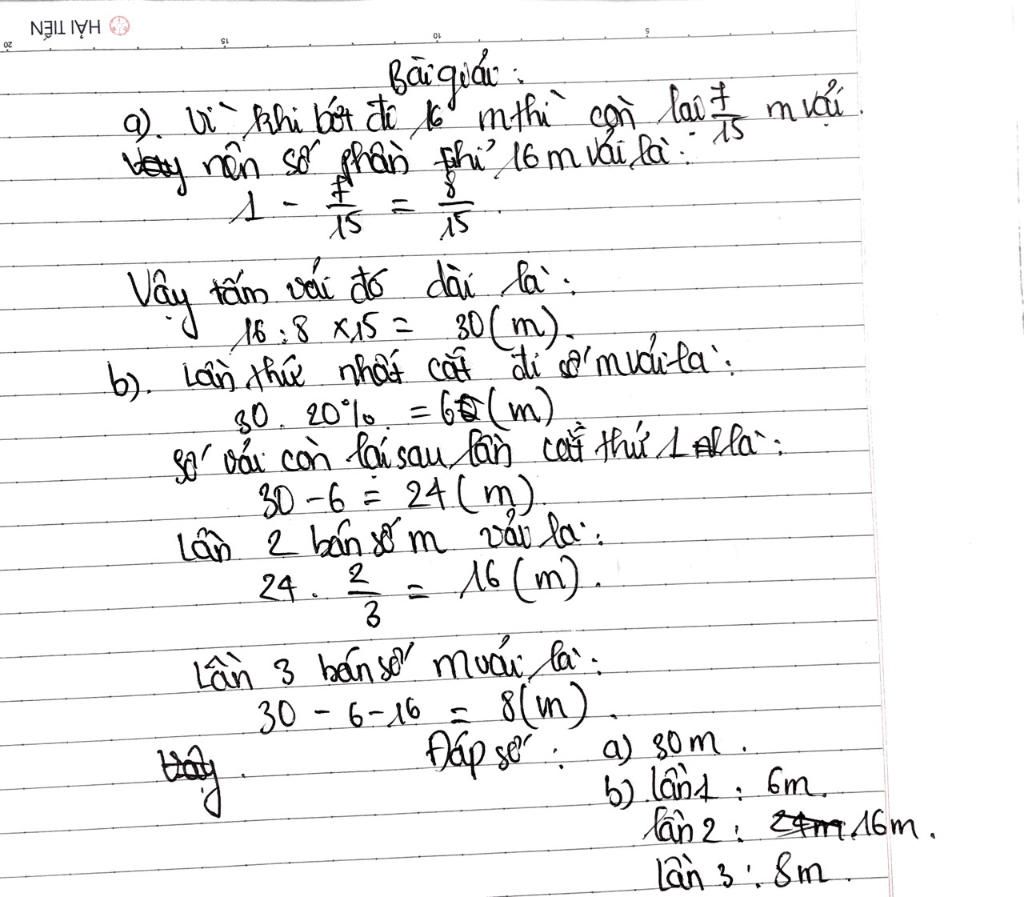 HẢI TIẾN
20 15 10 5
Bài giải:
a). Vì khi bớt đi 16 m thì còn lại 7/15 m vải.
nên số phần chỉ 16 m vải là:
1 - 7/15 = 8/15.
Vậy tấm vải đó dài là:
16 : 8 x 15 = 30 (m).
b). Lần thứ nhất cắt đi số m vải là:
30. 20% = 6 (m)
số vải còn lại sau lần cắt thứ 1 là:
30 - 6 = 24 (m)
Lần 2 bán số m vải là:
24 . 2/3 = 16 (m).
Lần 3 bán số m vải là:
30 - 6 - 16 = 8 (m).
Đáp số: a) 30 m.
b) lần 1 : 6m.
lần 2 : 16m.
Lần 3 : 8m.